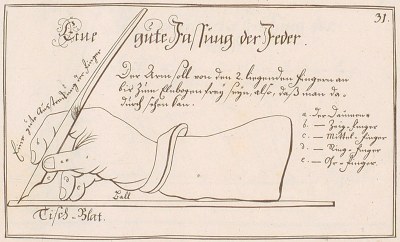 31.
Eine gute Fassung der Feder.
Eine gute Ausstreckung der Finger
Der Arm soll von den 2. liegenden Fingern an
bis zum Elenbogen frey seyn, also, daß man da-
durch sehen kan.
a. der Daumen
b. — Zeig-finger
c. — Mittel-finger
d. — Ring-finger
e. — Or-finger.
Ball
Tisch-Blat.